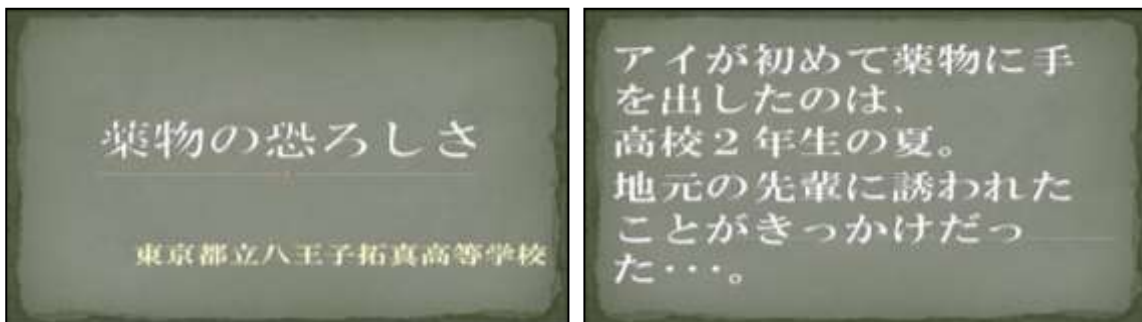 薬物の恐ろしさ
東京都立八王子拓真高等学校
アイが初めて薬物に手
を出したのは、
高校２年生の夏。
地元の先輩に誘われた
ことがきっかけだっ
た・・・。